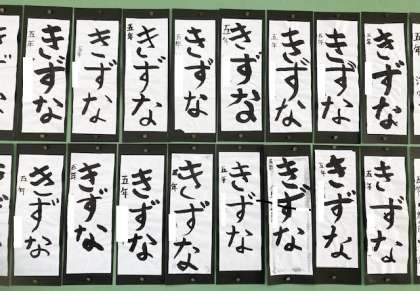 きずな
五年
きずな
五年
きずな
五年
きずな
五年
きずな
五年
きずな
五年
きずな
五年
きずな
五年
きずな
五年
きずな
五年
きずな
五年
きずな
五年
きずな
五年
きずな
五年
きずな
五年
きずな
五年